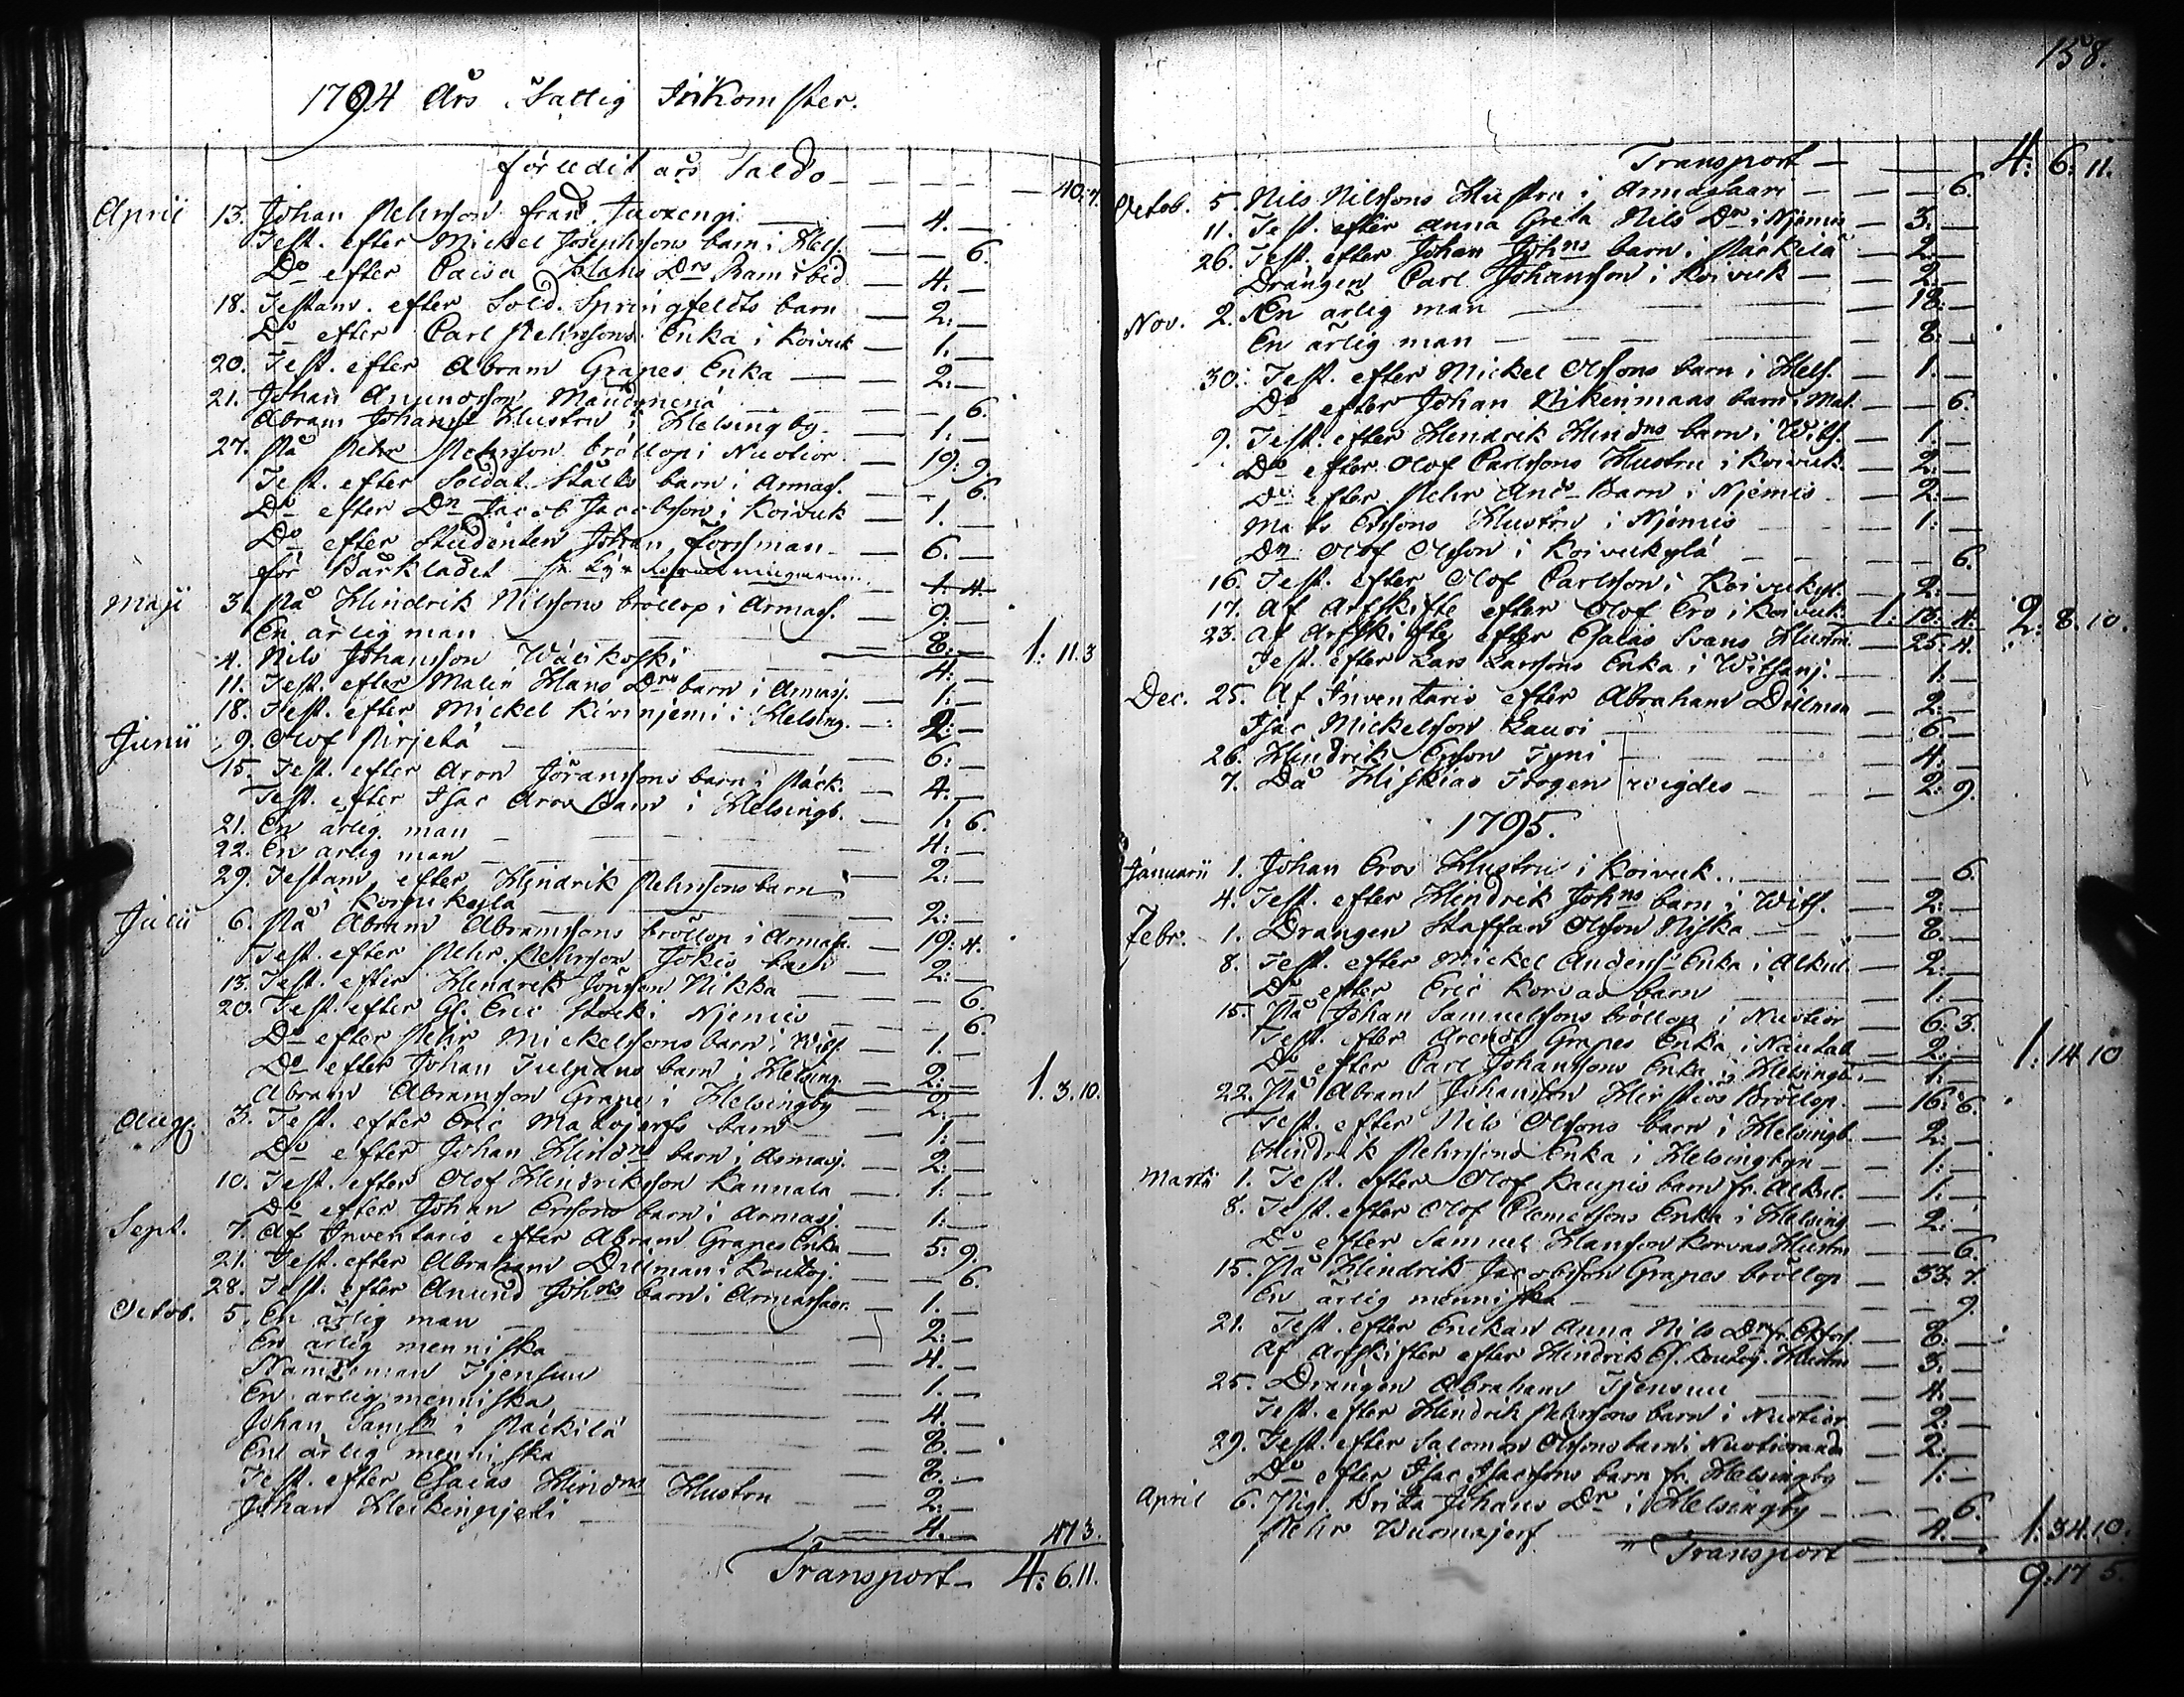 1794 Års Fattig Inkomster.
förledit års Saldo 40: 7.
Aprill 13. Johan Pehrsson från Juoxengi 4. —
Test. efter Mickel Josephssons barn i Hels. — 6.
Do efter Caisa Hans Drs Barn ibid. 4. —
18. Testam. efter Sold. Springfeldts barn 2: —
Do efter Carl Pehrssons Enka i Koivuk 1. —
20. Test. efter Abram Grapes Enka 2: —
21. Johan Anundsson — 6.
Abram Johans Hustru i Helsingby 1. —
27. På Pehr Pehrsson bröllop i Nuotior. 19: 9.
Test. efter Soldat Ståls barn i Armass. — 6.
Do efter Dn Jacob Jacobsson i Koivuk 1. —
Do efter Studenten Johan Forssman 6. —
för Bårklädet 1. 4
Maji 3. På Hindrik Nilssons bröllop i Armass. 9: —
En ärlig man 8. — 1: 11. 3
4. Nils Johansson 4: —
11. Test. efter Malin Hans Drs barn i Armasj. 1: —
18. Test. efter Mickel Kivinjemi i Helsing. 2: —
Junii 9. Olof Pirjetä 6: —
15. Test. efter Aron Jöranssons barn i Päck. 4. —
Test. efter Isac Arons Barn i Helsingb. 1: 6.
21. En ärlig man 4: —
22. En ärlig man 2: —
29. Testam efter Hindrik Pehrssons barn
i Koivukylä 2: —
Julii 6. På Abram Abramssons bröllop i Armass. 19: 4.
Test. efter Pehr Pehrsson Jokis barn 2: —
13. Test. efter Hendrik Jönsson Nikka — 6.
20. Test. efter Gl. Eric Niemis — 6.
Do efter Pehr Mickelssons barn i Wits. 1. —
Do efter Johan Tulpans barn i Helsing. 2: — 1. 3. 10.
Abram Abramsson Grape i Helsingby 2: —
Aug. 3. Test. efter Eric barn 1: —
Do efter Johan Hindrs barn i Armasj. 2: —
10. Test. efter Olof Hendriksson Kannala 1: —
Do efter Johan Erssons barn i Armasj. 1: —
Sept. 7. Af Inventario efter Abram Grapes Enka 5: 9.
21. Test. efter Abraham Dillman i — 6.
28. Test. efter Anund Johns barn i Armassaar. 1. —
Octob. 5. En ärlig man 2: —
En ärlig menniska 4. —
Nämdeman Tjensuu 1. —
En ärlig menniska 4. —
Johan Sams i Päckilä 8. —
En ärlig menniska 8. —
Test. efter Esaias Hindrs Hustru 2: —
Johan Heikingijeti 4. — 47 3.
Transport 4: 6. 11.
158.
Transport 4: 6: 11.
Octob. 5. Nils Nilssons Hustru i Armassaari — 6.
11. Test. efter Anna Greta Nils Dr i Njemis 3: —
26. Test. efter Johan Johns barn i Päckilä 2: —
Drängen Carl Johansson i Koivuk 2: —
Nov. 2. En ärlig man 18: —
En ärlig man 8: —
30. Test. efter Mickel Olssons barn i Hels. 1. —
Do efter Johan barn i Mat. — 6.
9. Test. efter Hendrik Hindrs barn i Wits. 1. —
Do efter Olof Carlssons Hustru i Koivuk. 2: —
Do efter Pehr Ands Barn i Njemis 2: —
Mats Erssons Hustru i Njemis 1: —
Dn Olof Olsson i Koivukylä — 6.
16. Test. efter Olof Carlsson i Koivukyl. 2: —
17. Af Arfskifte efter Olof Ers i Koivuk 1: 18: 4. 2: 8. 10.
23. Af Arfskifte efter Esaias Svans Hustru 25: 4.
Test. efter Lars Larssons Enka i Witsanj. 1: —
Dec. 25. Af Inventario efter Abraham Dillman 2: —
Isac Mickelsson Lauri 6. —
26. Hindrik Ersson Tyni 4. —
7. Då Hiskias wigdes 2: 9.
1795.
Januarii 1. Johan Ers Hustru i Koivuk. — 6.
4. Test. efter Hindrik Johns barn i Wits. 2: —
Febr. 1. Drängen Staffan Olsson Niska 8. —
8. Test. efter Mickel Anders Enka i Alkul. 2: —
Do efter Eric Korvas barn 1: —
15. På Johan Samuelssons bröllop i Nuotior 6: 3.
Test. efter Arendt Grapes Enka i 2: — 1: 14 10
Do efter Carl Johanssons Enka i Helsingb. 1: —
22. På Abram Johansson Hirstiös Bröllop 16: 6.
Test. efter Nils Olssons barn i Helsingb. 2: —
Hindrik Pehrssons Enka i Helsingbyn 1: —
Martii 1. Test. efter Olof Kaupis barn fr. Alkul. 1: —
8. Test. efter Olof Clemetssons Enka i Helsing 2: —
Do efter Samuel Hansson Korvas Hustru — 6.
15. På Hindrik Jacobsson Grapes bröllop 53. 7.
En ärlig menniska — 9.
21. Test. efter Enckan Anna Nils Dr fr. 8. —
Af Arfskiftes efter Hindrik Hustru 3: —
25. Drängen Abraham Tjensuu 4. —
Test. efter Hindrik Pehrssons barn i Nuotior 2: —
29. Test. efter Salomon Olssons barn i Nuotioranda 2: —
Do efter Isac Isacssons barn fr. Helsingby 1: —
April 6. Pig. Brita Johans Dr i Helsingby — 6.
Pehr Wuomajerf 4. — 1: 34. 10.
Transport 9: 17 5.